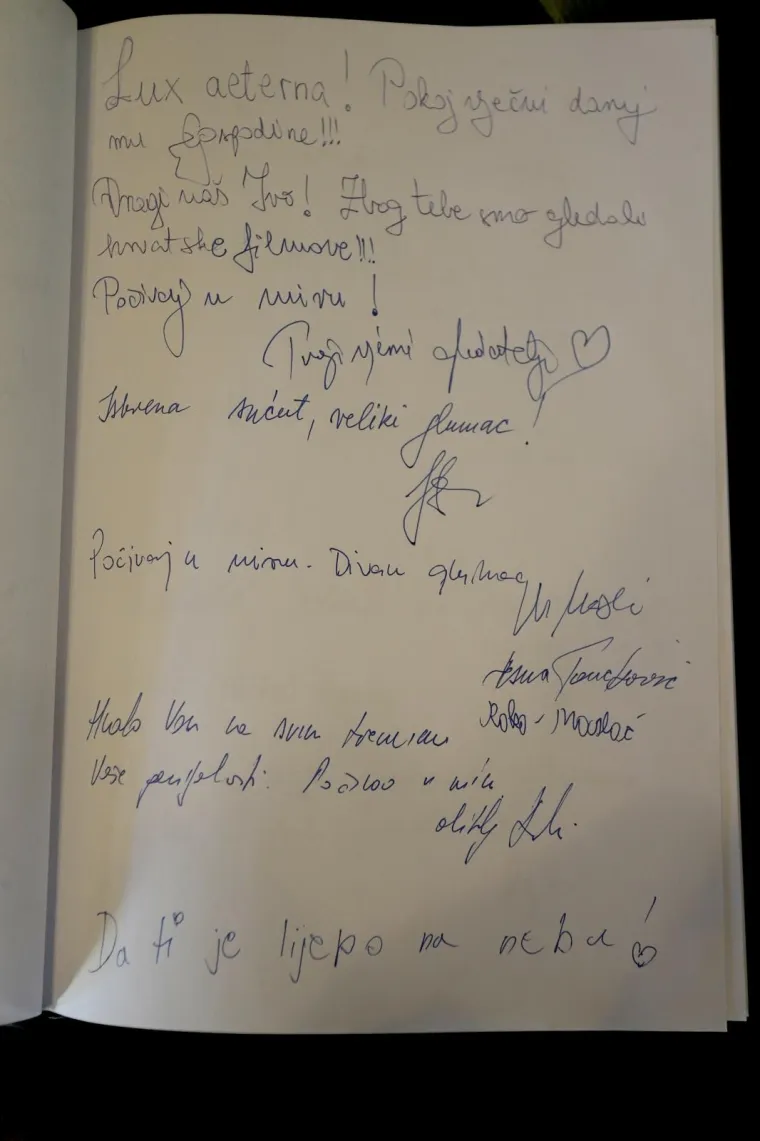 Lux aeterna! Pokoj vječni daruj
mu Gospodine!!!
Dragi naš Ivo! Zbog tebe smo gledali
hrvatske filmove!!!
Počivaj u miru!
Tvoji vjerni gledatelji
Iskrena sućut, veliki glumac!
Počivaj u miru. Divan glumac
Hvala Vam na svim
Vaše
Da ti je lijepo na nebu!